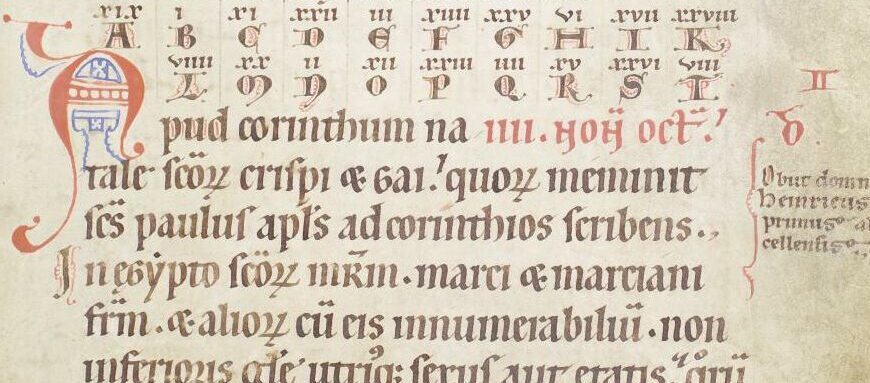 xix i xi xxii iii xiiii xxv vi xvii xxviii
A B C D E F G H I K
viiii xx ii xii xxiii iiii xv xxvi viii
L M N O P Q R S T
Apud corinthum na iiii. Non̄ oct̄.
tale scōꝝ crispi & Gai. quoꝝ meminit
sc̄s paulus apl̄s ad corinthios scribens.,
In egẏpto scōꝝ mr̄m. marci & marciani
fr̄m. & alioꝝ cū eis innumerabiliū. non
inferioris
sexus aut etatis
II
D
Obiit domn
Heinricus
primus
cellensis